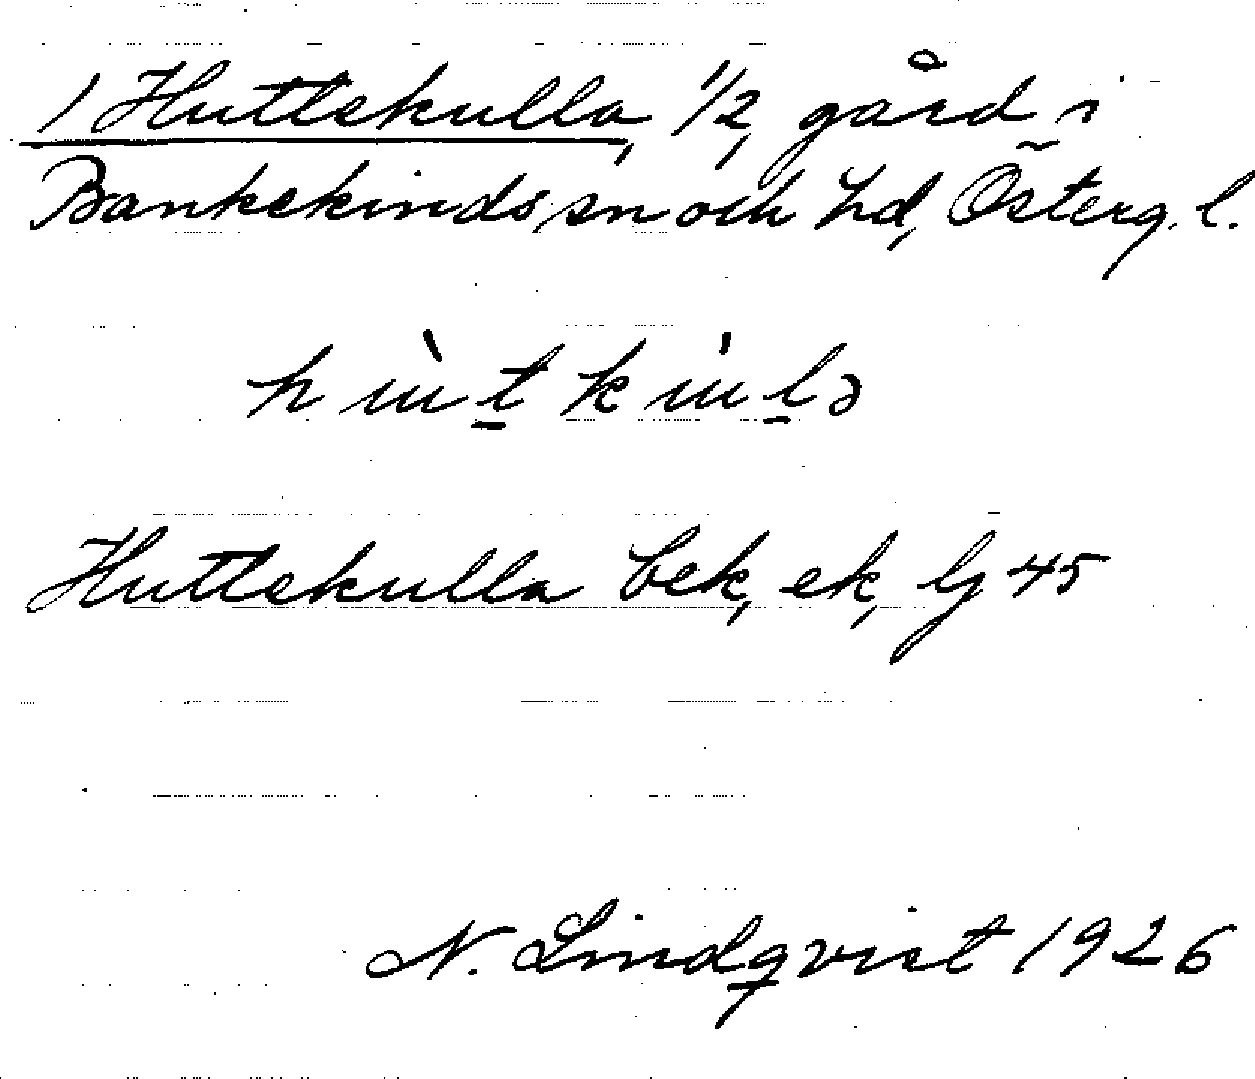 1 Huttskulla, 1/2, gård i
Bankekinds sn och hd, Österg. l.
Huttskulla bek, ek, lj 45
N. Lindqvist 1926